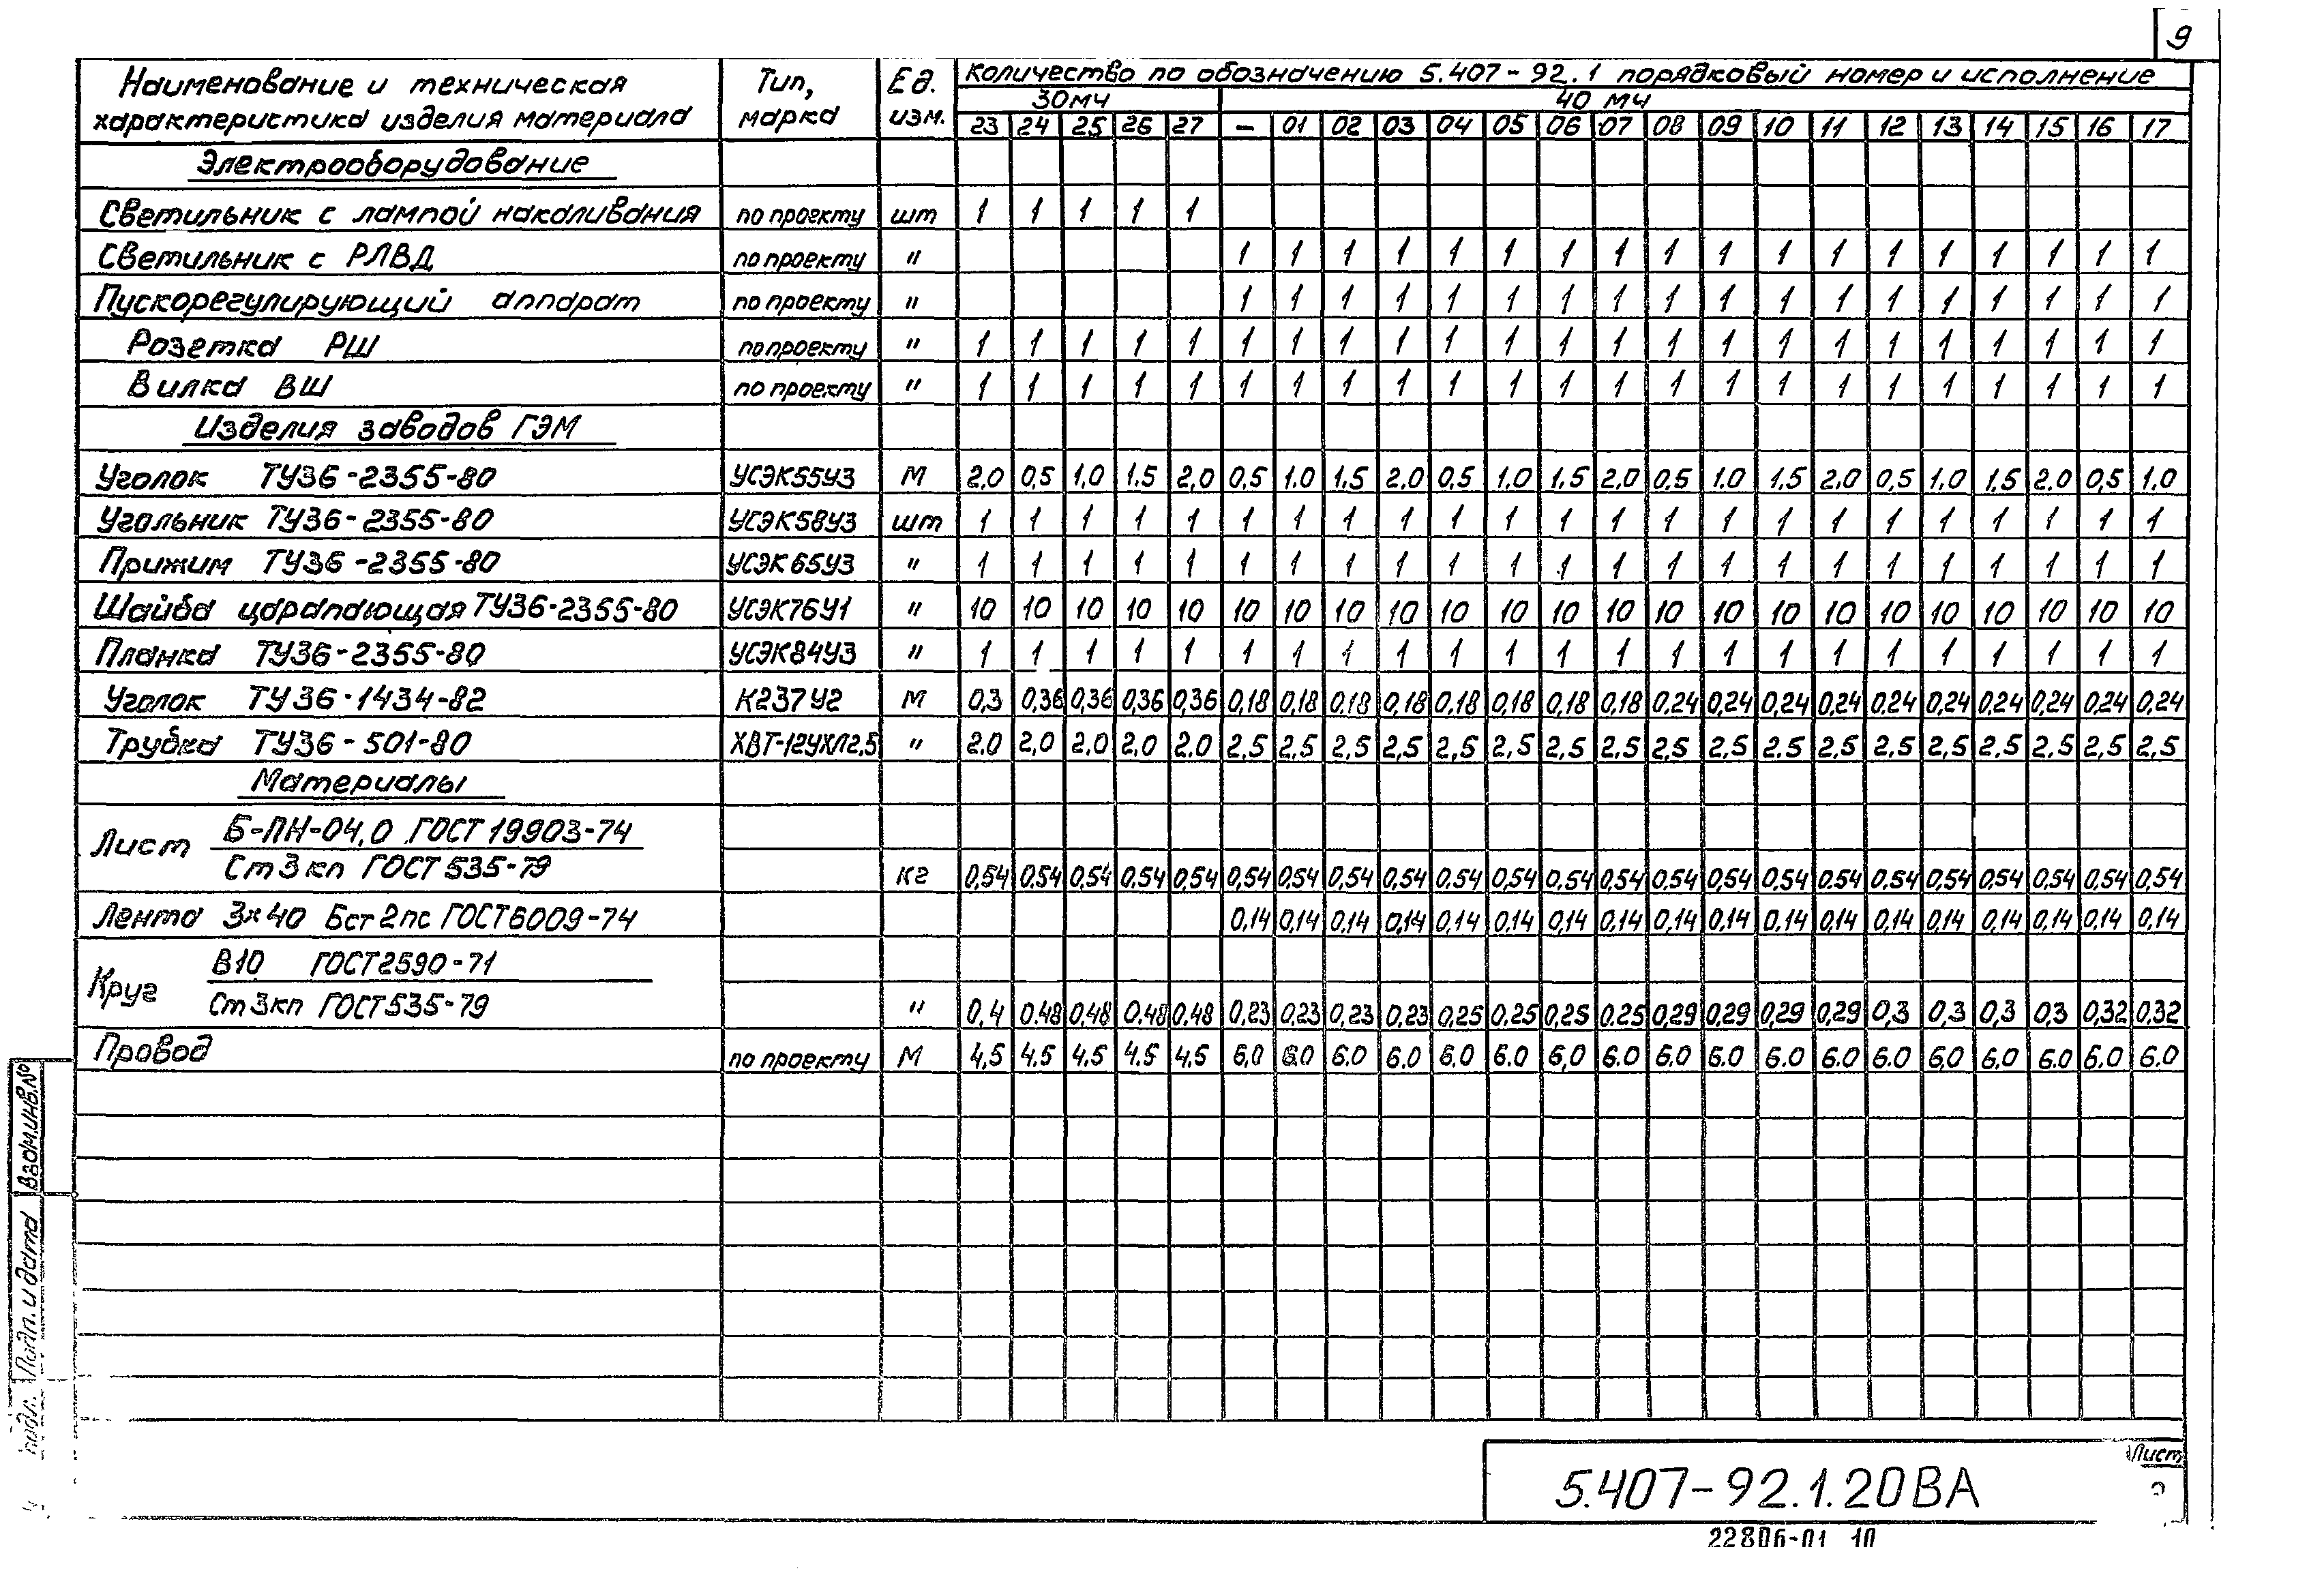 9
Наименование и техническая характеристика изделия материала Тип, марка Ед. изм. Количество по обозначению 5.407-92.1 порядковый номер и исполнение
30МЧ 40 МЧ
23 24 25 26 27 — 01 02 03 04 05 06 07 08 09 10 11 12 13 14 15 16 17
Электрооборудование
Светильник с лампой накаливания по проекту шт 1 1 1 1 1
Светильник с РЛВД по проекту " 1 1 1 1 1 1 1 1 1 1 1 1 1 1 1 1 1 1
Пускорегулирующий аппарат по проекту " 1 1 1 1 1 1 1 1 1 1 1 1 1 1 1 1 1 1
Розетка РШ по проекту " 1 1 1 1 1 1 1 1 1 1 1 1 1 1 1 1 1 1 1 1 1 1 1
Вилка ВШ по проекту " 1 1 1 1 1 1 1 1 1 1 1 1 1 1 1 1 1 1 1 1 1 1 1
Изделия заводов ГЭМ
Уголок ТУ36-2355-80 УСЭК55У3 М 2,0 0,5 1,0 1.5 2,0 0,5 1,0 1,5 2.0 0,5 1,0 1,5 2,0 0,5 1.0 1,5 2.0 0,5 1,0 1,5 2.0 0,5 1.0
Угольник ТУ36-2355-80 УСЭК58У3 шт 1 1 1 1 1 1 1 1 1 1 1 1 1 1 1 1 1 1 1 1 1 1 1
Прижим ТУ36-2355-80 УСЭК65У3 " 1 1 1 1 1 1 1 1 1 1 1 1 1 1 1 1 1 1 1 1 1 1 1
Шайба царапающая ТУ36-2355-80 УСЭК76У1 " 10 10 10 10 10 10 10 10 10 10 10 10 10 10 10 10 10 10 10 10 10 10 10
Планка ТУ36-2355-80 УСЭК84У3 " 1 1 1 1 1 1 1 1 1 1 1 1 1 1 1 1 1 1 1 1 1 1 1
Уголок ТУ36-1434-82 К237У2 М 0,3 0,36 0,36 0,36 0,36 0,18 0,18 0,18 0,18 0,18 0,18 0,18 0,18 0.24 0,24 0,24 0,24 0.24 0,24 0,24 0,24 0,24 0,24
Трубка ТУ36-501-80 ХВТ-12УХЛ2,5 " 2.0 2,0 2.0 2.0 2.0 2.5 2.5 2,5 2,5 2,5 2,5 2.5 2.5 2,5 2,5 2.5 2.5 2.5 2.5 2.5 2.5 2.5 2.5
Материалы
Лист Б-ПН-04,0 ГОСТ 19903-74
Ст3кп ГОСТ 535-79 кг 0,54 0.54 0,54 0.54 0,54 0,54 0,54 0,54 0,54 0.54 0,54 0.54 0,54 0.54 0,54 0.54 0.54 0.54 0,54 0,54 0.54 0.54 0,54
Лента 3х40 Бст2пс ГОСТ6009-74 0,14 0,14 0,14 0,14 0,14 0,14 0,14 0,14 0,14 0,14 0,14 0,14 0,14 0,14 0,14 0,14 0,14 0,14
Круг В10 ГОСТ2590-71
Ст3кп ГОСТ535-79 " 0,4 0.48 0,48 0.48 0.48 0,23 0,23 0,23 0,23 0,25 0.25 0,25 0.25 0,29 0,29 0,29 0,29 0,3 0,3 0,3 0,3 0,32 0,32
Провод по проекту М 4,5 4.5 4.5 4.5 4.5 6,0 6.0 6.0 6.0 6.0 6.0 6,0 6.0 6.0 6.0 6.0 6.0 6.0 6,0 6.0 6.0 6.0 6.0
Взам.инв.№
Подп. и дата
подл.
5.407-92.1.20ВА
Лист
22806-01 10